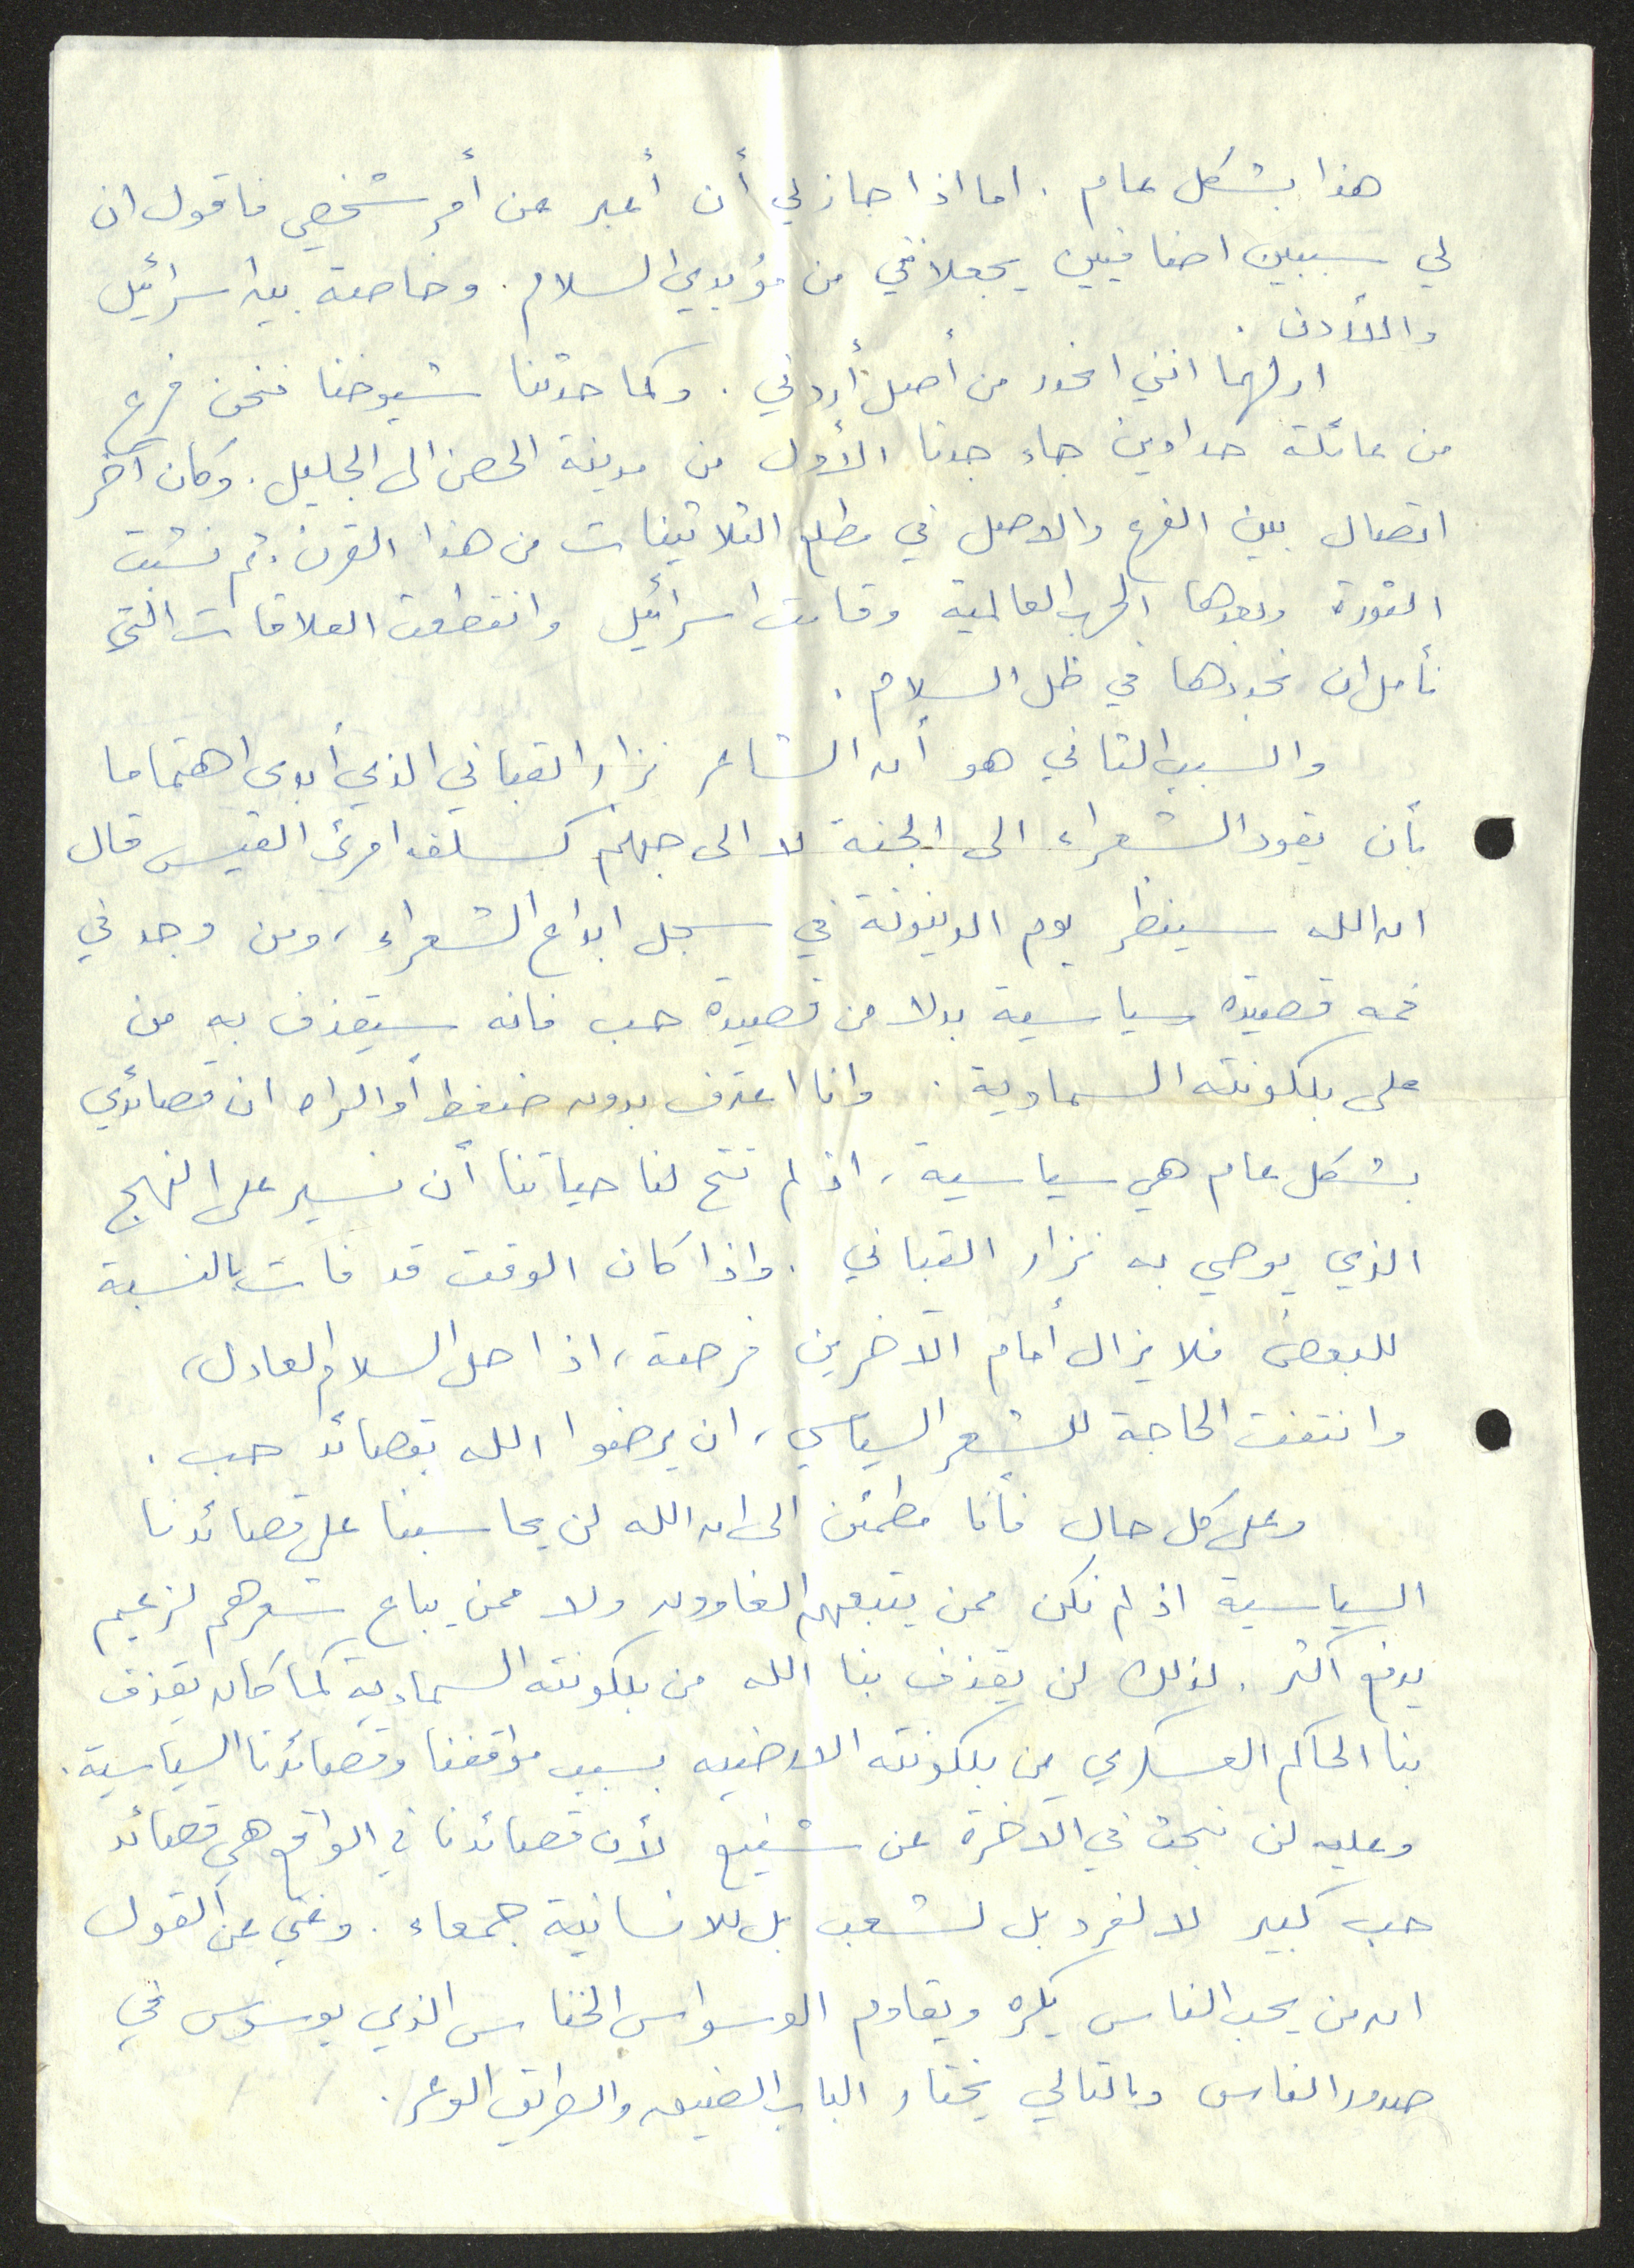 هذا بشكل عام . اما اذا جاز لي أن أعبر عن أمر شخصي فاقول ان
لي سببين اضافيين يجعلانني من مؤيدي السلام . وخاصة بين اسرائيل
والأردن .
اولهما انني انحدر من أصل أردني . وكما حدثنا شيوخنا فنحن فرع
من عائلة حداوين جاء جدنا الأول من مدينة الحصن الى الجليل . وكان آخر
اتصال بين الفرع والاصل في مطلع الثلاثينات من هذا القرن . ثم نشبت
الثورة وبعدها الحرب العالمية وقامت اسرائيل وانقطعت العلاقات التي
نأمل ان نجددها في ظل السلام .
والسبب الثاني هو أن الشاعر نزار القباني الذي أبدى اهتماما
بأن يقود الشعراء الى الجنة لا الى جهنم كسلفه امرئ القيس قال
ان الله سينظر يوم الدينونة في سجل ابداع الشعراء ، ومن وجد في
فمه قصيدة سياسية بدلا من قصيدة حب فانه سيقذف به من
على بلكونته السماوية . وانا اعترف بدون ضغط أو اكراه ان قصائدي
بشكل عام هي سياسية ، اذ لم تتح لنا حياتنا أن نسير على النهج
الذي يوصي به نزار القباني . واذا كان الوقت قد فات بالنسبة
للبعض فلا يزال أمام الآخرين فرصة ، اذا حل السلام العادل ،
وانتفت الحاجة للشعر السياسي ، ان يرضوا الله بقصائد حب .
وعلى كل حال فأنا مطمئن الى ان الله لن يحاسبنا على قصائدنا
السياسية اذ لم نكن ممن يتبعهم الغاوون ولا ممن يباع شعرهم لزعيم
يدفع اكثر . لذلك لن يقذف بنا الله من بلكونته السماوية كما كان يقذف
بنا الحاكم العسكري من بلكونته الارضيه بسبب مواقفنا وقصائدنا السياسية .
وعليه لن نبحث في الآخرة عن شفيع لأن قصائدنا في الواقع هي قصائد
حب كبير لا لفرد بل لشعب بل للانسانية جمعاء . وغني عن القول
ان من يحب الناس يكره ويقاوم الوسواس الخناس الذي يوسوس في
صدور الناس وبالتالي يختار الباب الضيق والطريق الوعر .